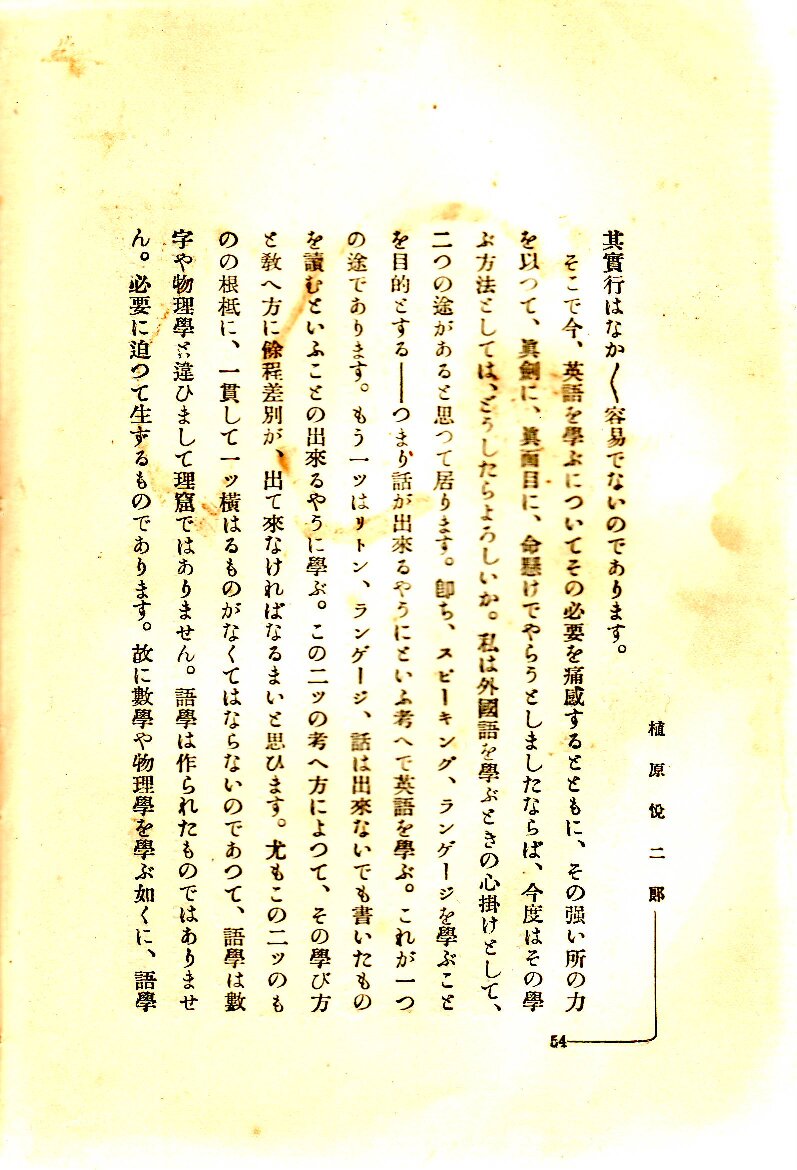 植原悅二郎
54
其實行はなか〱容易でないのであります。
そこで今、英語を學ぶについてその必要を痛感するとともに、その强い所の力
を以つて、眞劍に、眞面目に、命懸けでやらうとしましたならば、今度はその學
ぶ方法としては、どうしたらよろしいか。私は外國語を學ぶときの心掛けとして、
二つの途があると思つて居ります。卽ち、スピーキング、ランゲージを學ぶこと
を目的とする――つまり話が出來るやうにといふ考へで英語を學ぶ。これが一つ
の途であります。もう一ツはリトン、ランゲージ、話は出來ないでも書いたもの
を讀むといふことの出來るやうに學ぶ。この二ツの考へ方によつて、その學び方
と敎へ方に餘程差別が、出て來なければなるまいと思ひます。尤もこの二ツのも
のの根柢に、一貫して一ツ橫はるものがなくてはならないのであつて、語學は數
字や物理學と違ひまして理窟ではありません。語學は作られたものではありませ
ん。必要に迫つて生ずるものであります。故に數學や物理學を學ぶ如くに、語學